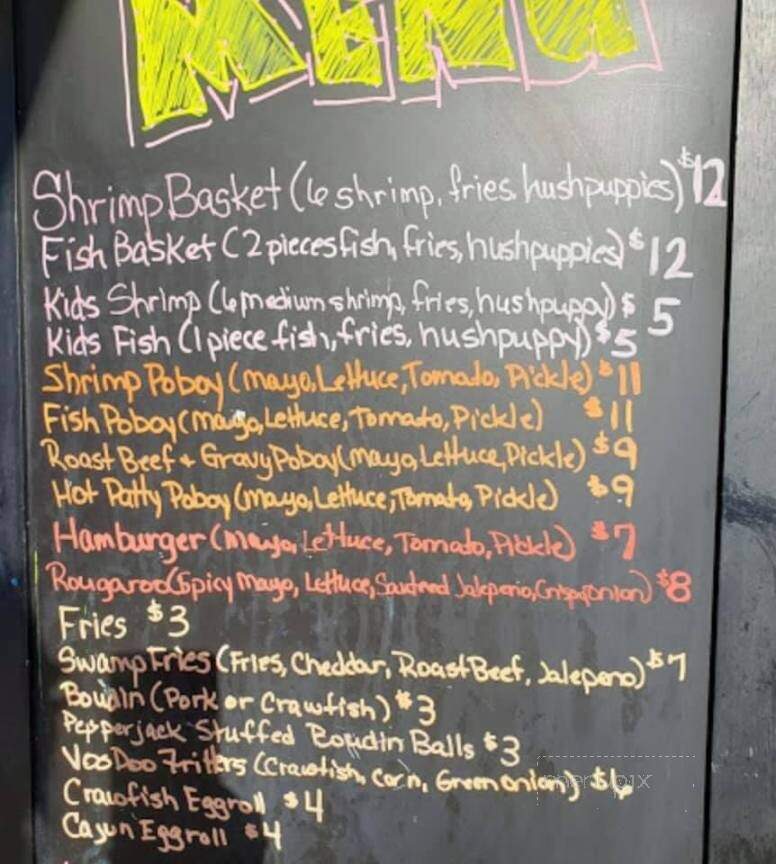 MENU
Shrimp Basket (6 shrimp, fries, hushpuppies) $12
Fish Basket (2 pieces fish, fries, hushpuppies) $12
Kids Shrimp (6 medium shrimp, fries, hushpuppy) $5
Kids Fish (1 piece fish, fries, hushpuppy) $5
Shrimp Poboy (mayo, Lettuce, Tomado, Pickle) $11
Fish Poboy (mayo, Lettuce, Tomato, Pickle) $11
Roast Beef + Gravy Poboy (mayo, Lettuce, Pickle) $9
Hot Patty Poboy (mayo, Lettuce, Tomato, Pickle) $9
Hamburger (mayo, Lettuce, Tomato, Pickle) $7
Rougaroo (Spicy Mayo, Lettuce, Sauteed Jalepeno, Crispy Onion) $8
Fries $3
Swamp Fries (Fries, Cheddar, Roast Beef, Jalepeno) $7
Boudin (Pork or Crawfish) $3
Pepperjack Stuffed Boudin Balls $3
VooDoo Fritters (Crawfish, Corn, Green onion) $6
Crawfish Eggroll $4
Cajun Eggroll $4